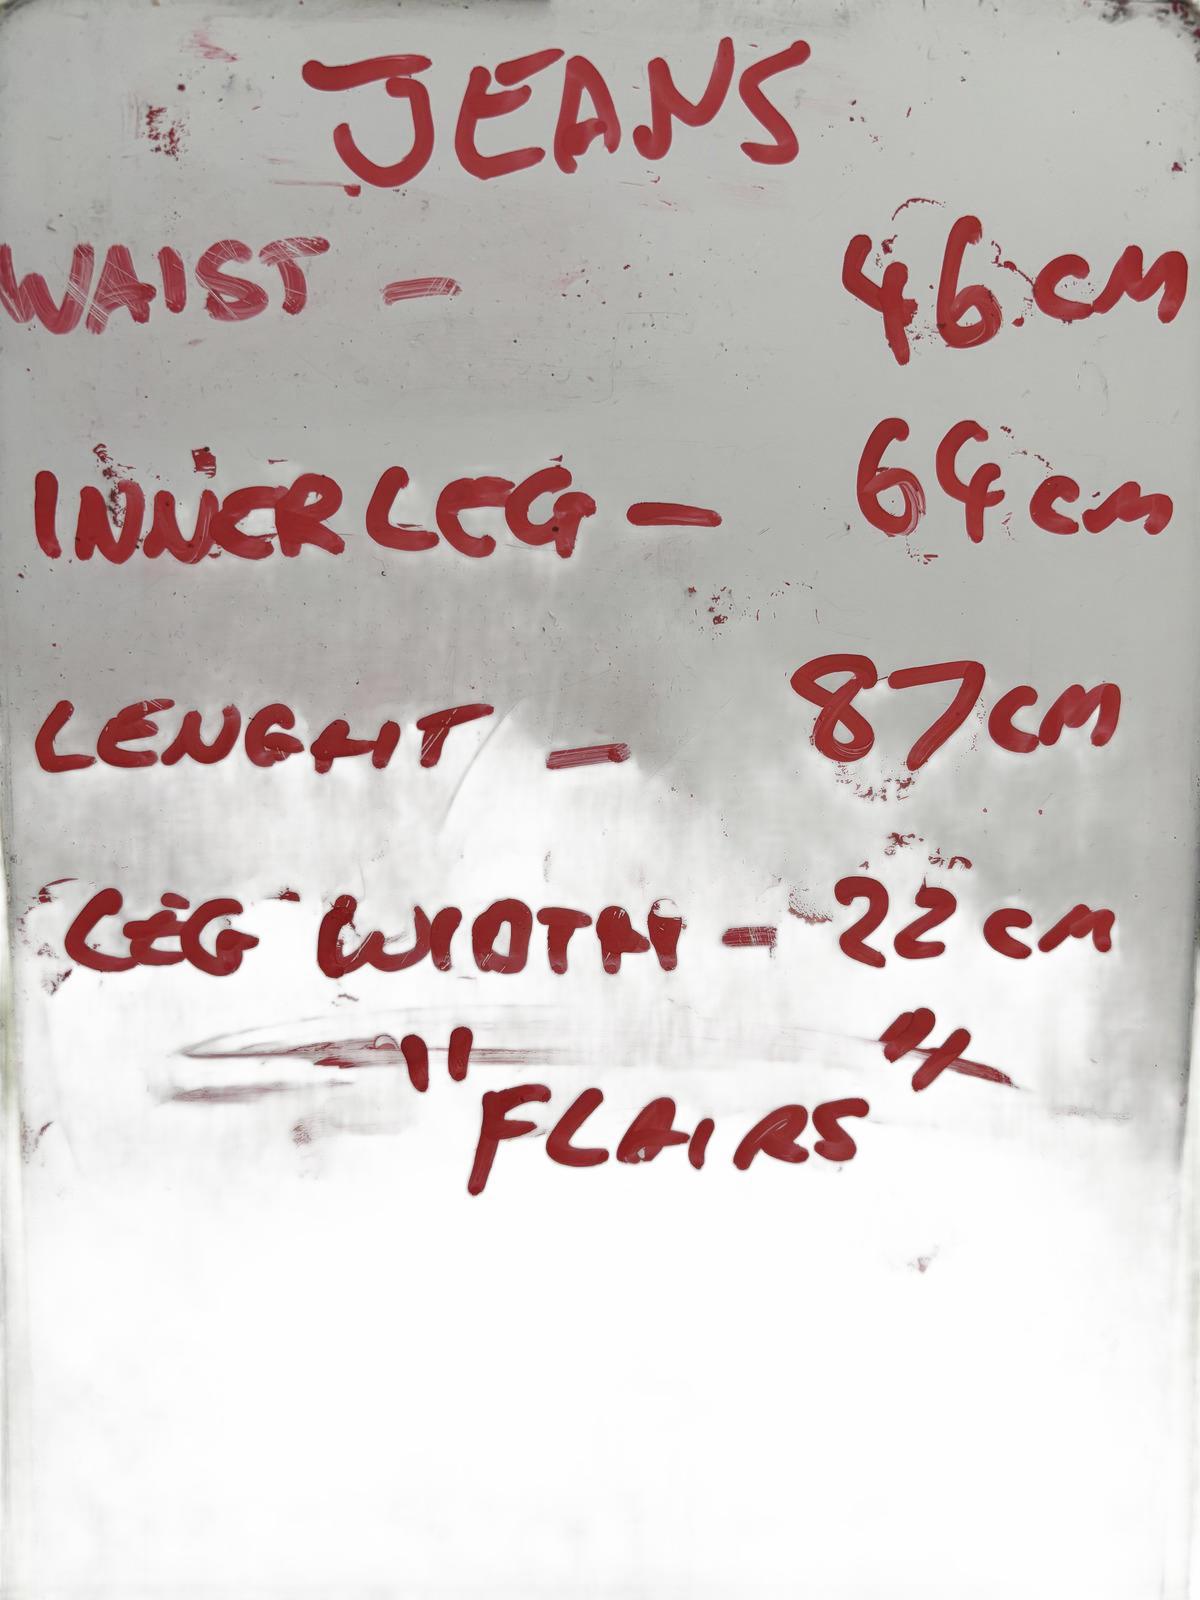 JEANS
WAIST - 46 CM
INNER LEG - 64 CM
LENGHT - 87 CM
LEG WIDTH - 22 CM
"FLAIRS"